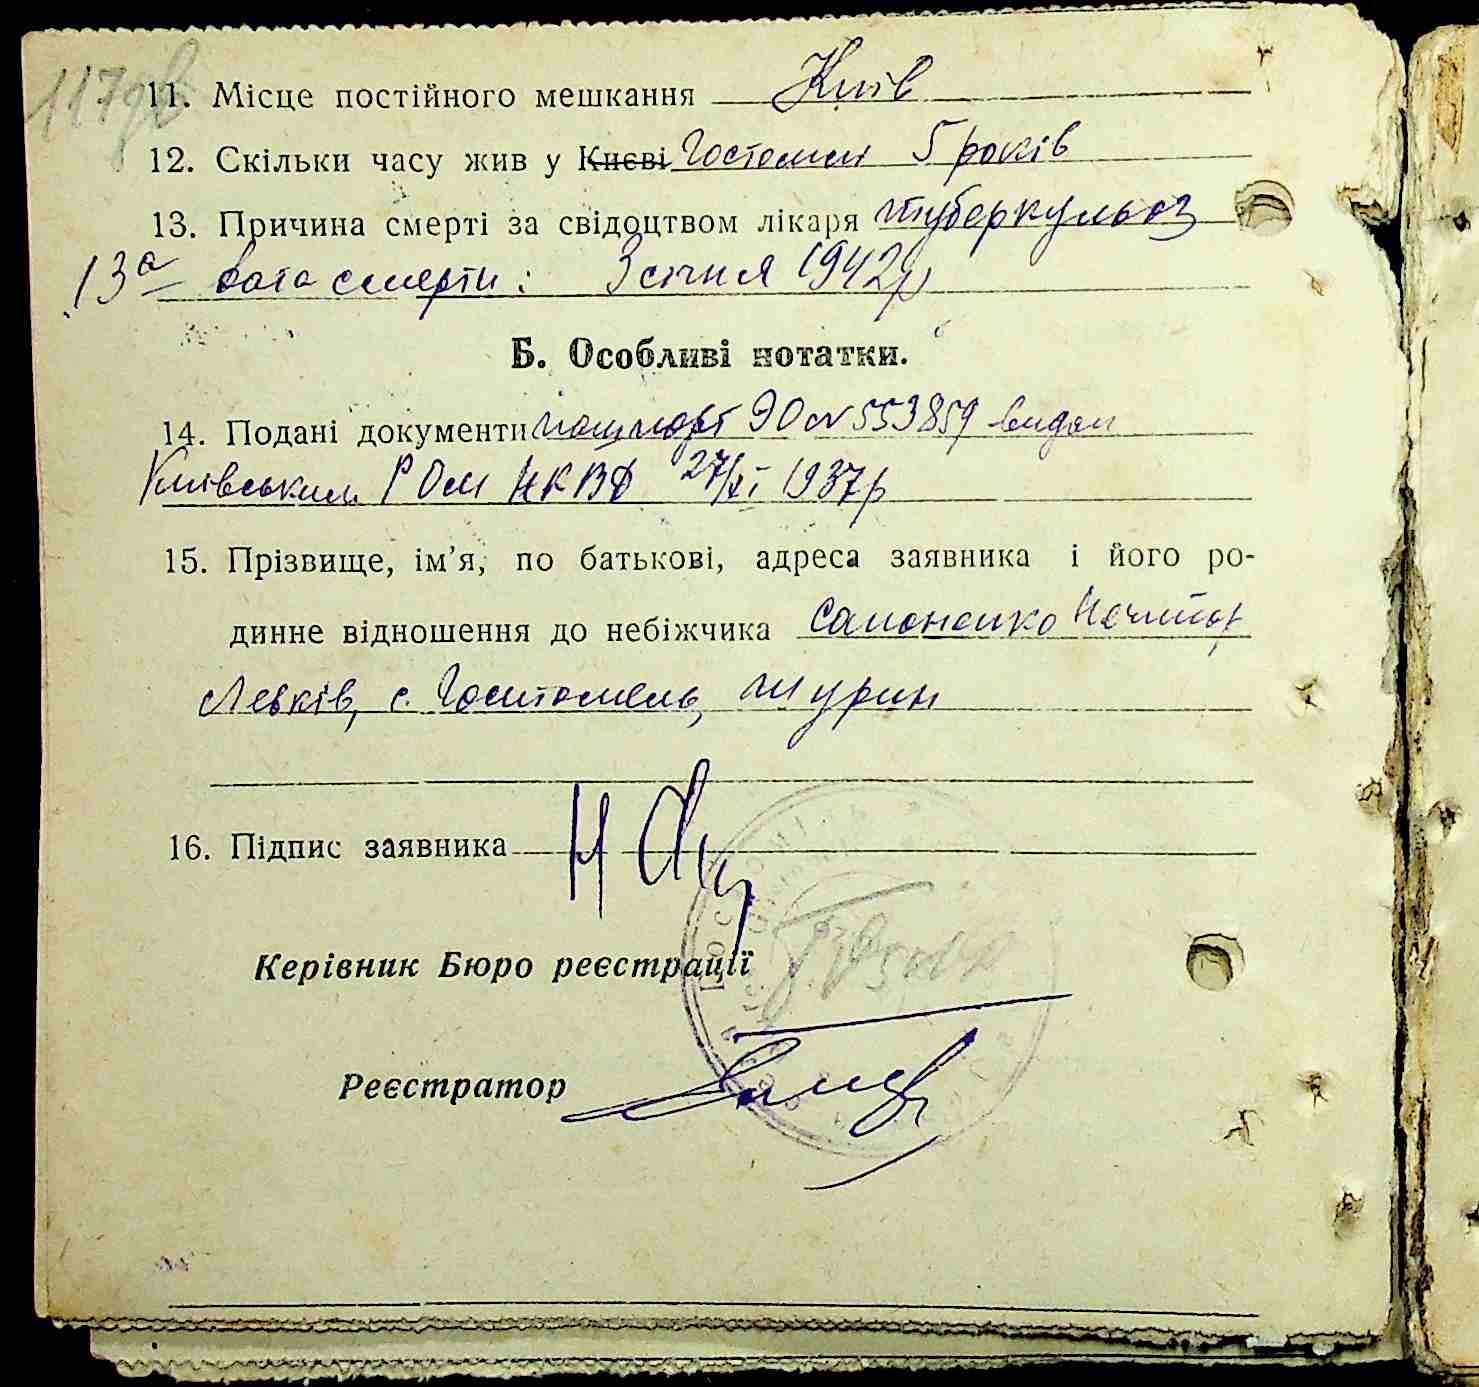 117 зв
11. Місце постійного мешкання Київ
12. Скільки часу жив у Києві Гостомлі 5 років
13. Причина смерті за свідоцтвом лікаря туберкульоз
13а дата смерти: 3 січня 1942р
Б. Особливі нотатки.
14. Подані документи пашпорт ЭО № 553859 видан
Київським РОМ НКВД 27/XI 1937р
15. Прізвище, ім'я, по батькові, адреса заявника і його ро-
динне відношення до небіжчика
Левків, с. Гостомель, шурин
16. Підпис заявника
Керівник Бюро реєстрації
Реєстратор